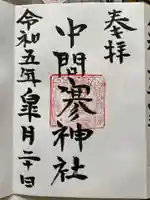 奉拝
中間神社
令和五年皐月二十日